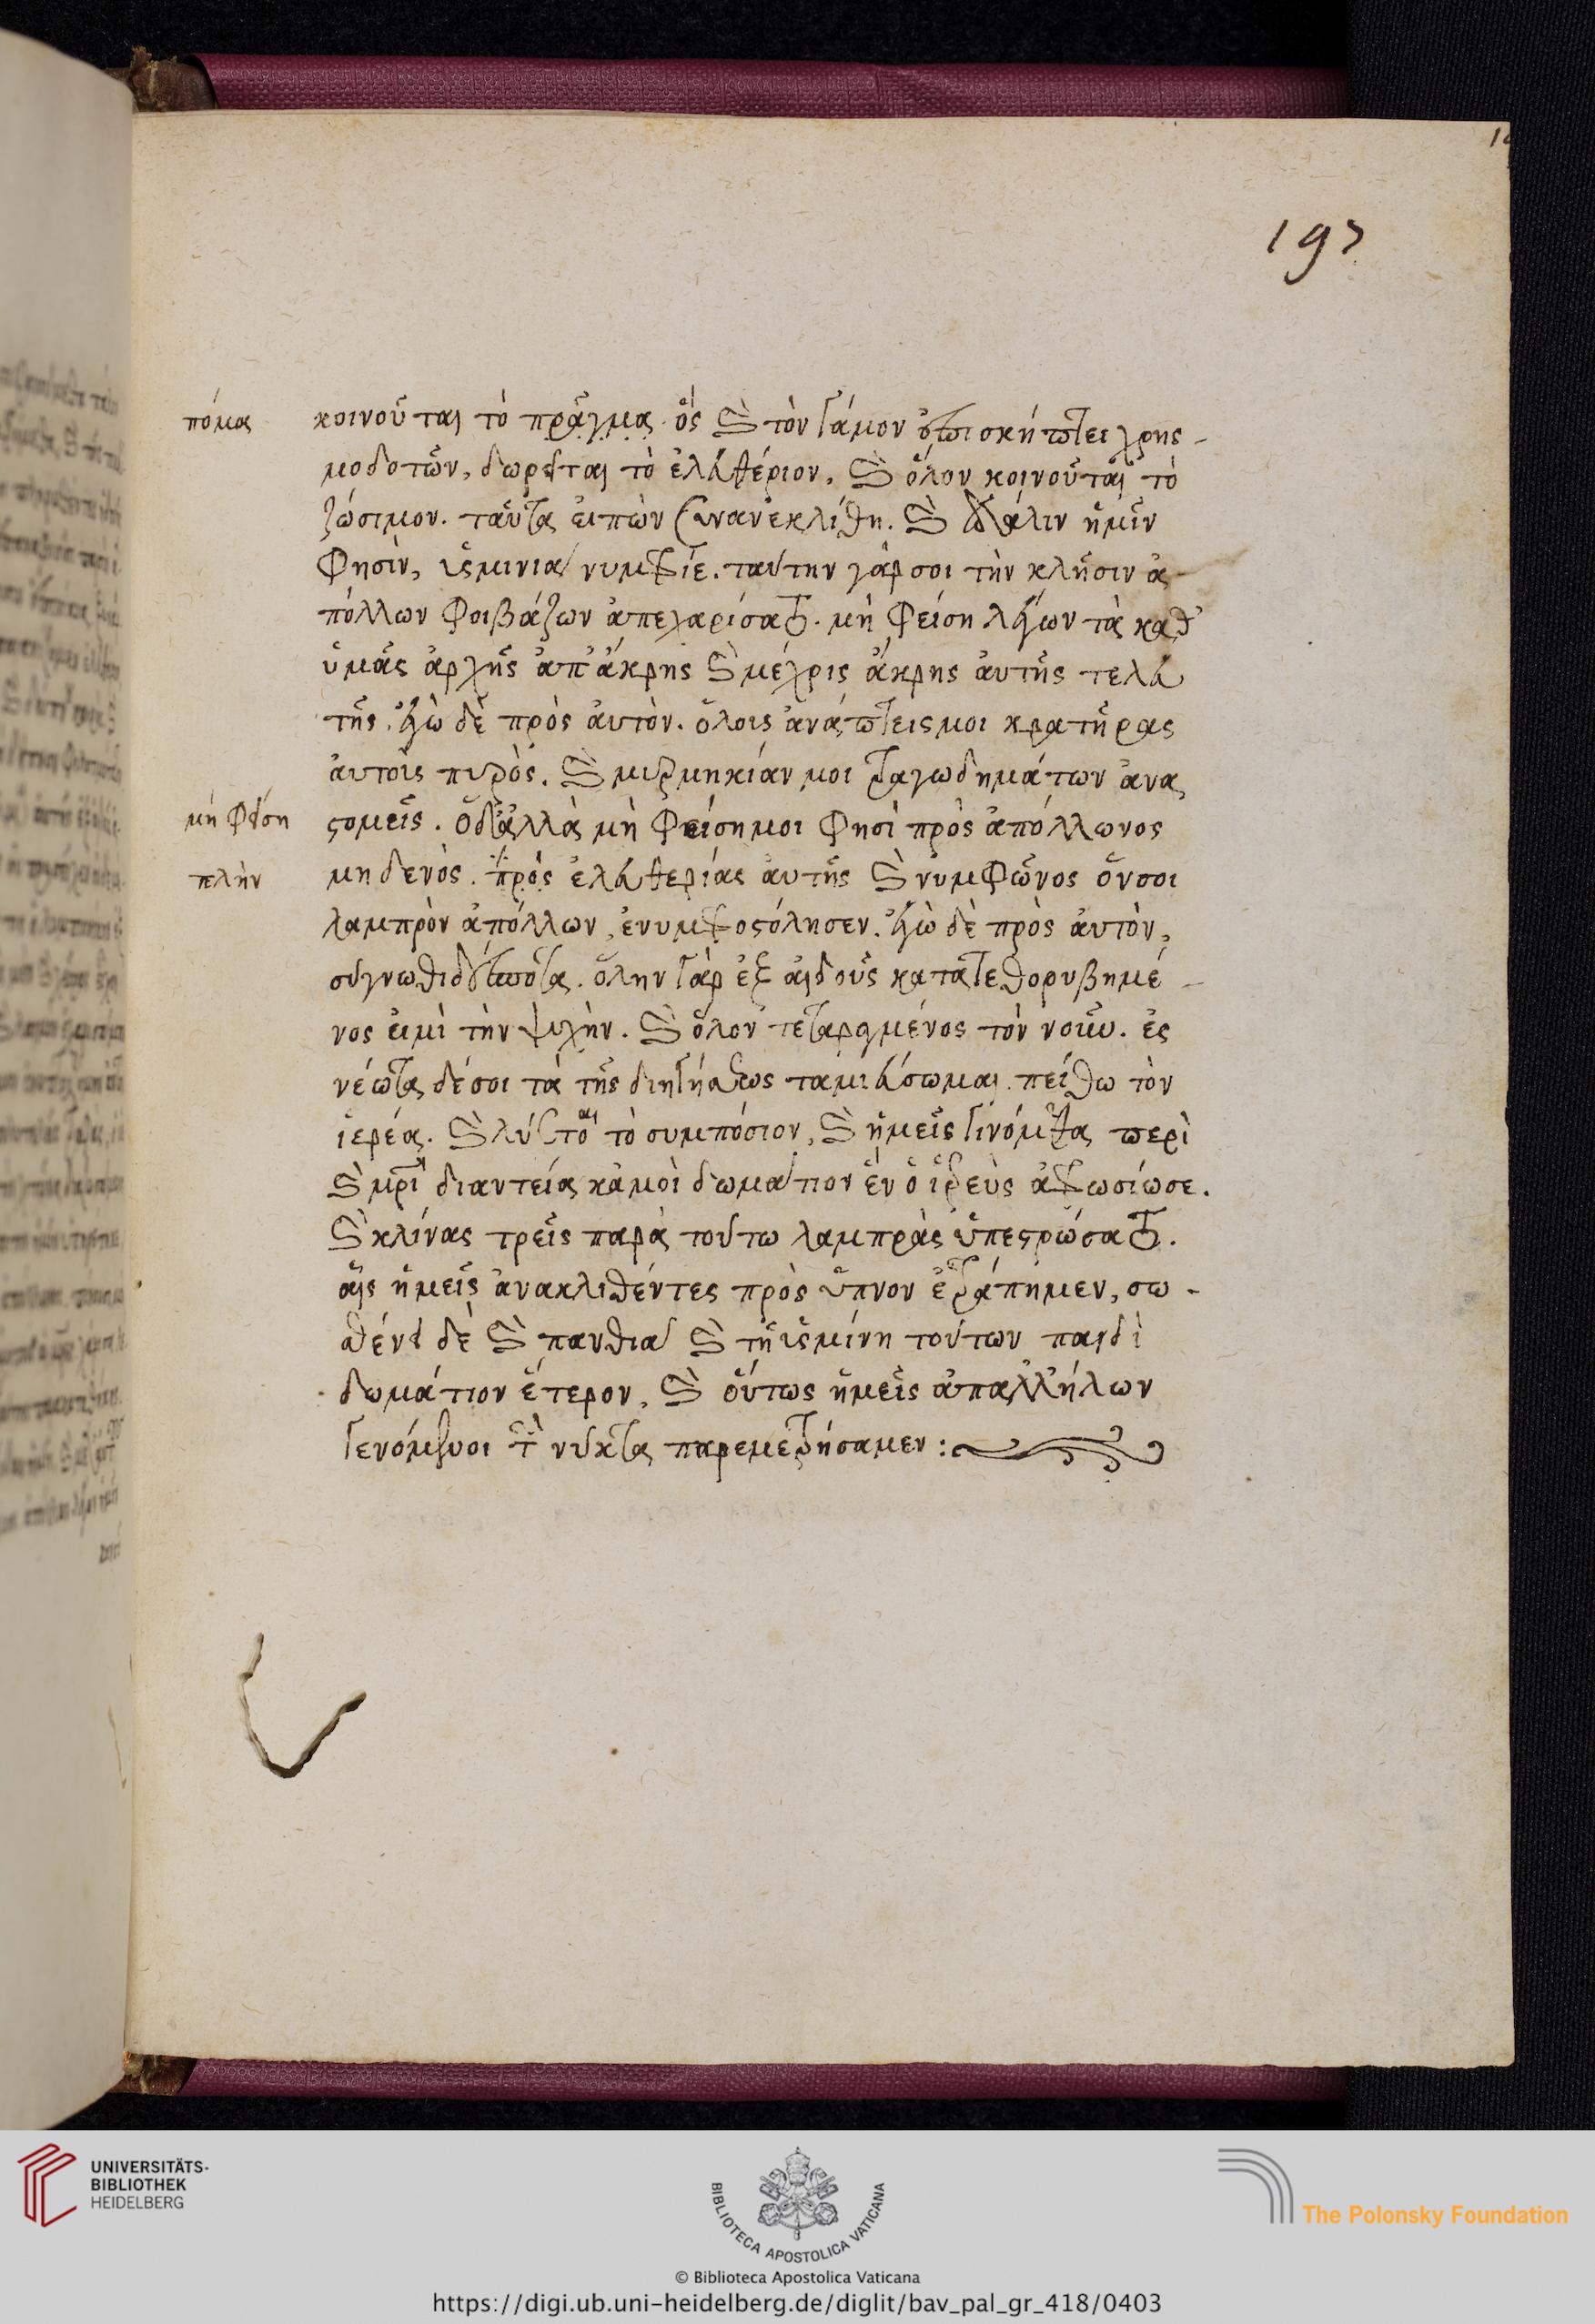 197
πόμα
κοινοῦται τὸ πρᾶγμα. ὃς καὶ τὸν γάμον ἐπισκήπτει χρησ-
μοδοτῶν, δωρεῖται τὸ ἐλευθέριον, καὶ ὅλον κοινοῦται τὸ
ζώσιμον. ταῦτα εἰπὼν συνανεκλίθη. καὶ πάλιν ἡμῖν
φησὶν, ὑσμινία νυμφίε. ταύτην γάρ σοι τὴν κλῆσιν ἀ-
πόλλων φοιβάζων ἀπεχαρίσατο. μὴ φείσῃ λέγων τὰ καθ'
ὑμᾶς ἀρχῆς ἀπ' ἄκρης καὶ μέχρις ἄκρης αὐτῆς τελευ
τῆς. ἐγὼ δὲ πρὸς αὐτὸν. ὅλοις ἀνάπτεις μοι κρατῆρας
αὐτοῖς πυρὸς. καὶ μυρμηκίαν μοι τραγωδημάτων ἀνα
στομεῖς. ὁ δ' ἀλλὰ μὴ φείσῃ μοι φησὶ πρὸς ἀπόλλωνος
μὴ φείση
μηδενὸς. πρὸς ἐλευθερίας αὐτῆς καὶ νυμφῶνος ὅν σοι
πλὴν
λαμπρὸν ἀπόλλων, ἐνυμφοστόλησεν. ἐγὼ δὲ πρὸς αὐτὸν,
σύγνωθι δέσποτα. ὅλην γὰρ ἐξ αἰδοῦς κατατεθορυβημέ-
νος εἰμὶ τὴν ψυχὴν. καὶ ὅλον τεταραγμένος τὸν νοῦν. ἐς
νέωτα δέ σοι τὰ τῆς διηγήσεως ταμιεύσωμαι. πείθω τὸν
ἱερέα. καὶ λύεται τὸ συμπόσιον, καὶ ἡμεῖς γινόμεθα περὶ
καὶ κλίνας τρεῖς παρὰ τούτω λαμπρὰς ὑπεστρώσατο.
αἷς ἡμεῖς ἀνακλιθέντες πρὸς ὕπνον ἐτράπημεν,
δωμάτιον ἕτερον, καὶ οὕτως ἡμεῖς ἀπ' ἀλλήλων
γενόμενοι τὴν νύκτα παρεμετρήσαμεν:
UNIVERSITÄTS-
BIBLIOTHEK
HEIDELBERG
BIBLIOTECA APOSTOLICA VATICANA
The Polonsky Foundation
© Biblioteca Apostolica Vaticana
https://digi.ub.uni-heidelberg.de/diglit/bav_pal_gr_418/0403